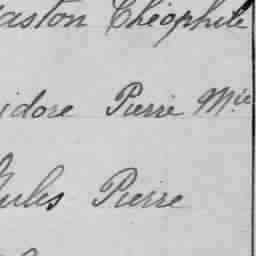 aston Théophile
idore Pierre Mie
Jules Pierre